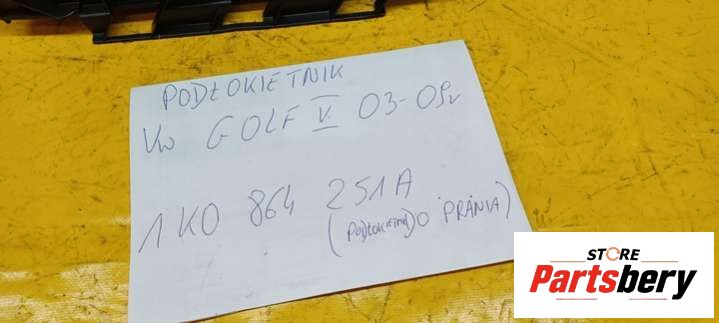 PODŁOKIETNIK
VW GOLF V 03-09r
1K0 864 251A
(PODŁOKIETNIK DO PRANIA)
STORE
Partsbery